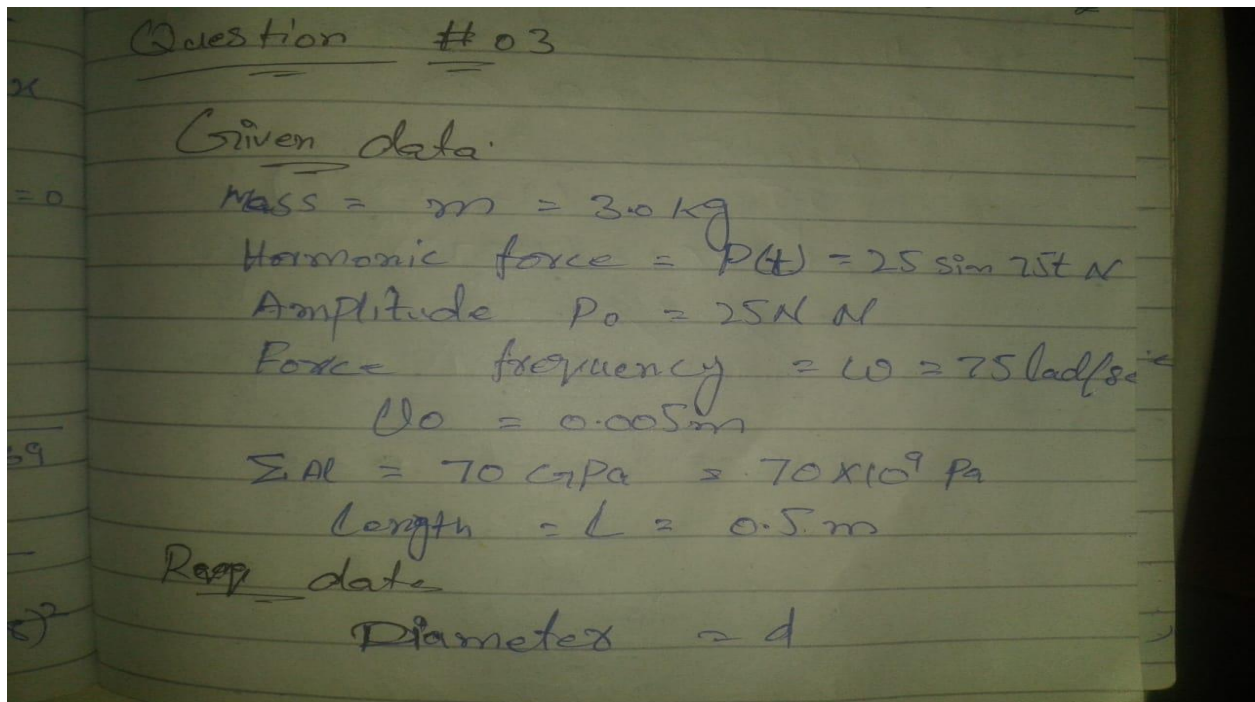 Question # 03
x
Given data.
= 0
Mass = m = 3.0 kg
Harmonic force = P(t) = 25 sin 75t N
Amplitude Po = 25N N
Force frequency = ω = 75 rad/sec
Uo = 0.005m
59
ΣAl = 70 GPa = 70 x10⁹ Pa
Length = L = 0.5 m
data
)²
Diameter = d